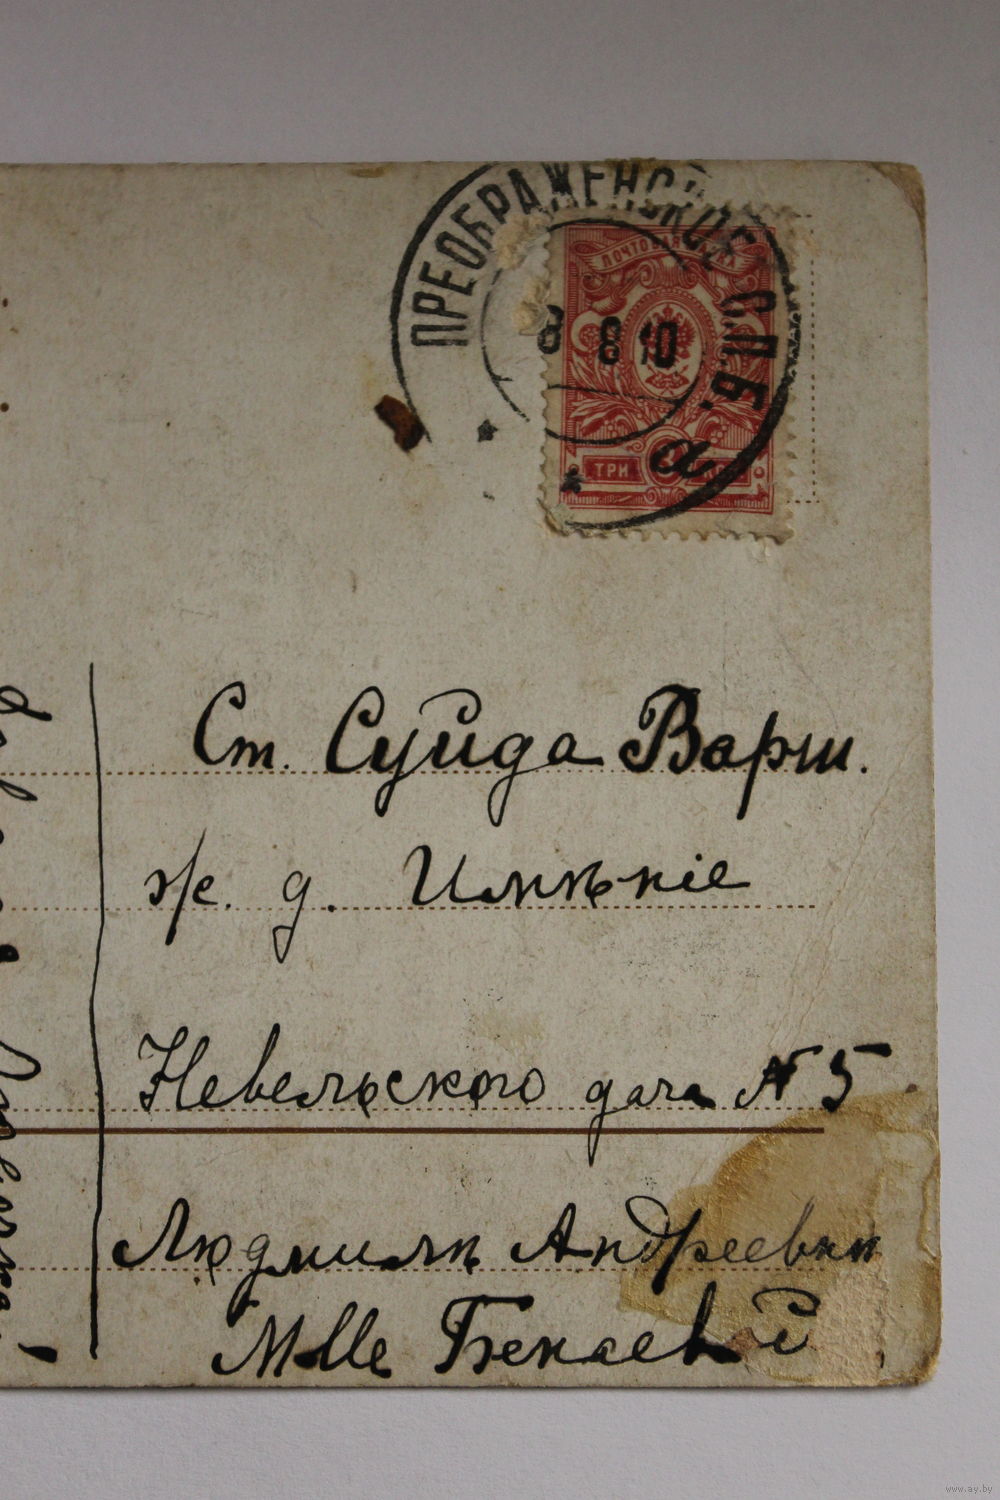 ПРЕОБРАЖЕНСКОЕ С.П.Б.
ПОЧТОВАЯ МАРКА
8 8 10
а
ТРИ
Ст. Суйда Варш.
ж. д. Имѣніе
Невельского дача № 5
Людмилѣ Андреевнѣ
Mlle Бекаевой
www.ay.by